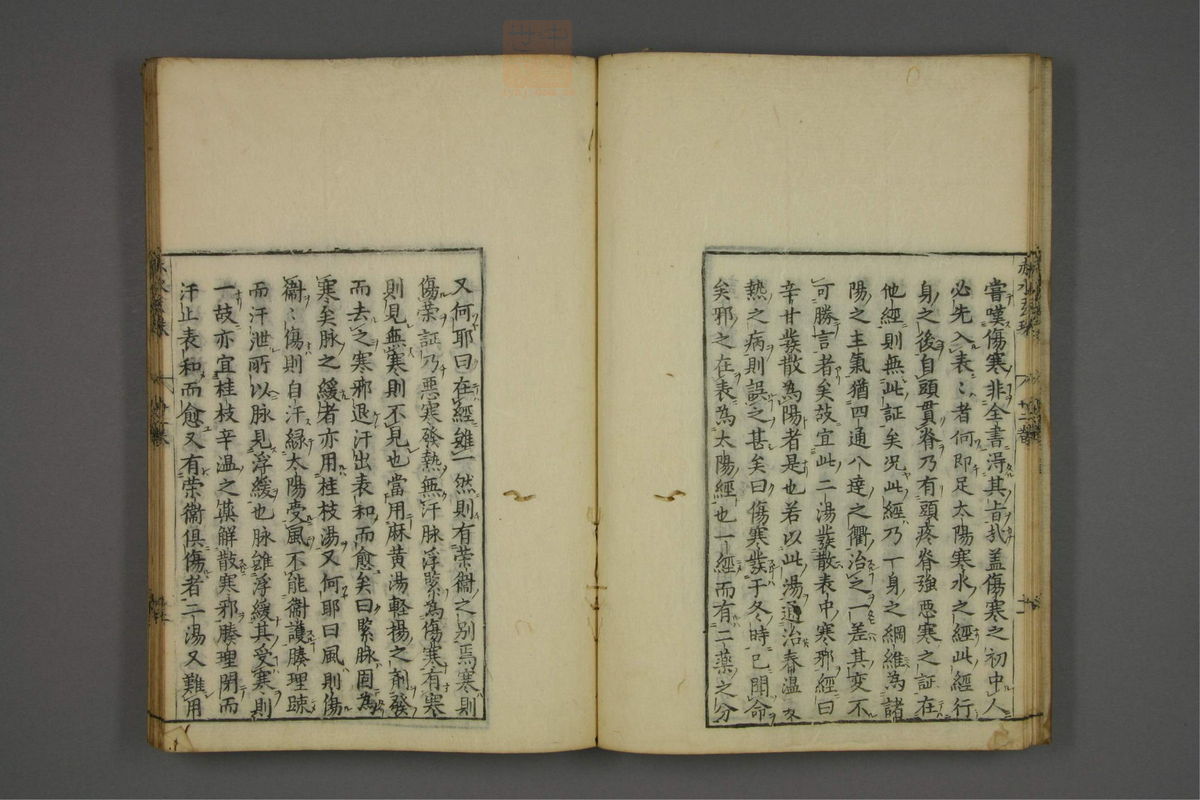 嘗嘆傷寒非全書淂其㫖㢤盖傷寒之初中人
必先入表〻者何即足太陽寒水之經此經行
身之後自頭貫脊乃有頭疼脊強惡寒之証在
他經則無此証矣况此經乃一身之綱維為諸
陽之主氣猶四通八達之衢治之一差其变不
可勝言者矣故宜此二湯發散表中寒邪經曰
辛甘發散為陽者是也若以此湯通治春温夏
熱之病則誤之甚矣曰傷寒發于冬時已聞命
矣邪之在表為太陽經也一經而有二薬之分
又何耶曰在經雖一然則有荣衞之别焉寒則
傷荣証乃惡寒發熱無汗脉浮緊為傷寒有寒
則見無寒則不見也當用麻黄湯軽揚之劑發
而去之寒邪退汗出表和而愈矣曰緊脉固為
寒矣脉之緩者亦用桂枝湯又何耶曰風則傷
衞〻傷則自汗縁太陽受風不能衞護腠理踈
而汗泄所以脉見浮緩也脉雖浮緩其受寒則
一故亦宜桂枝辛温之薬解散寒邪腠理閉而
汗止表和而愈又有荣衞俱傷者二湯又難用